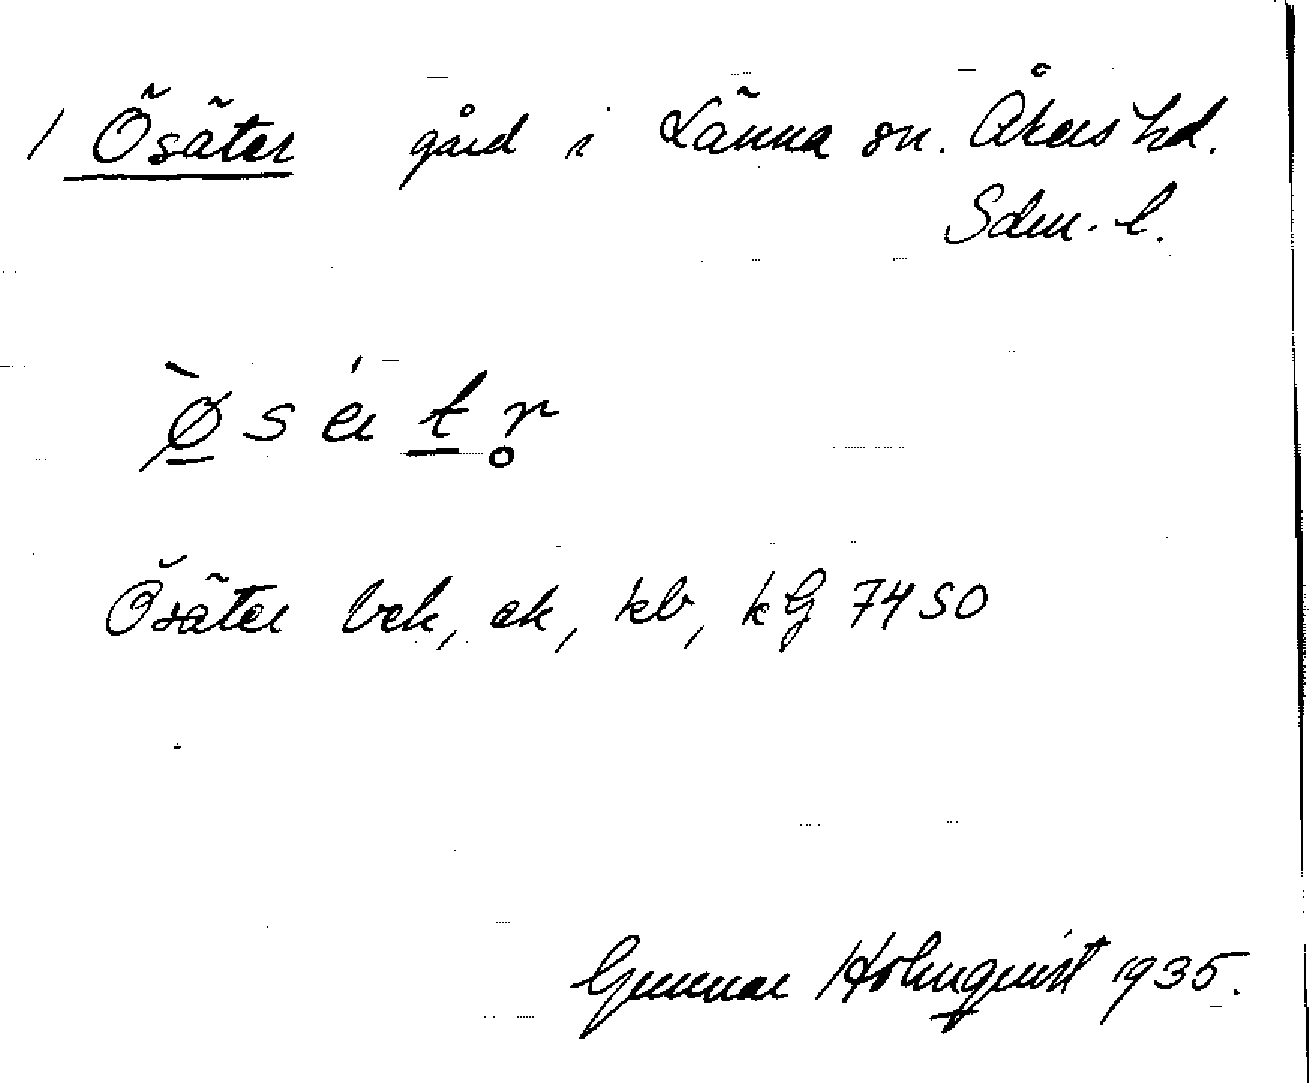 / Ösäter gård i Länna sn. Åkers hd.
Sdm. l.
Ösäter bek, ek, kb, kG 7450
Gunnar Holmquist 1935.